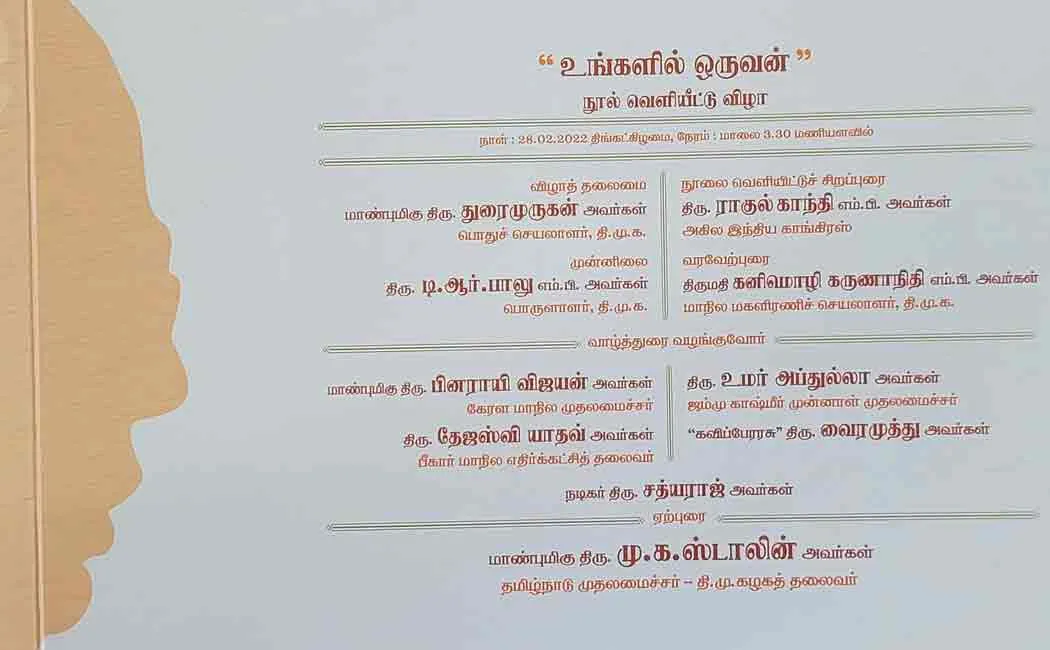 “ உங்களில் ஒருவன் ”
நூல் வெளியீட்டு விழா
நாள் : 28.02.2022 திங்கட்கிழமை, நேரம் : மாலை 3.30 மணியளவில்
விழாத் தலைமை
மாண்புமிகு திரு. துரைமுருகன் அவர்கள்
பொதுச் செயலாளர், தி.மு.க.
முன்னிலை
திரு. டி.ஆர்.பாலு எம்.பி. அவர்கள்
பொருளாளர், தி.மு.க.
நூலை வெளியிட்டுச் சிறப்புரை
திரு. ராகுல் காந்தி எம்.பி. அவர்கள்
அகில இந்திய காங்கிரஸ்
வரவேற்புரை
திருமதி கனிமொழி கருணாநிதி எம்.பி. அவர்கள்
மாநில மகளிரணிச் செயலாளர், தி.மு.க.
வாழ்த்துரை வழங்குவோர்
மாண்புமிகு திரு. பினராயி விஜயன் அவர்கள்
கேரள மாநில முதலமைச்சர்
திரு. தேஜஸ்வி யாதவ் அவர்கள்
பீகார் மாநில எதிர்க்கட்சித் தலைவர்
திரு. உமர் அப்துல்லா அவர்கள்
ஜம்மு காஷ்மீர் முன்னாள் முதலமைச்சர்
“கவிப்பேரரசு” திரு. வைரமுத்து அவர்கள்
நடிகர் திரு. சத்யராஜ் அவர்கள்
ஏற்புரை
மாண்புமிகு திரு. மு.க.ஸ்டாலின் அவர்கள்
தமிழ்நாடு முதலமைச்சர் – தி.மு.கழகத் தலைவர்